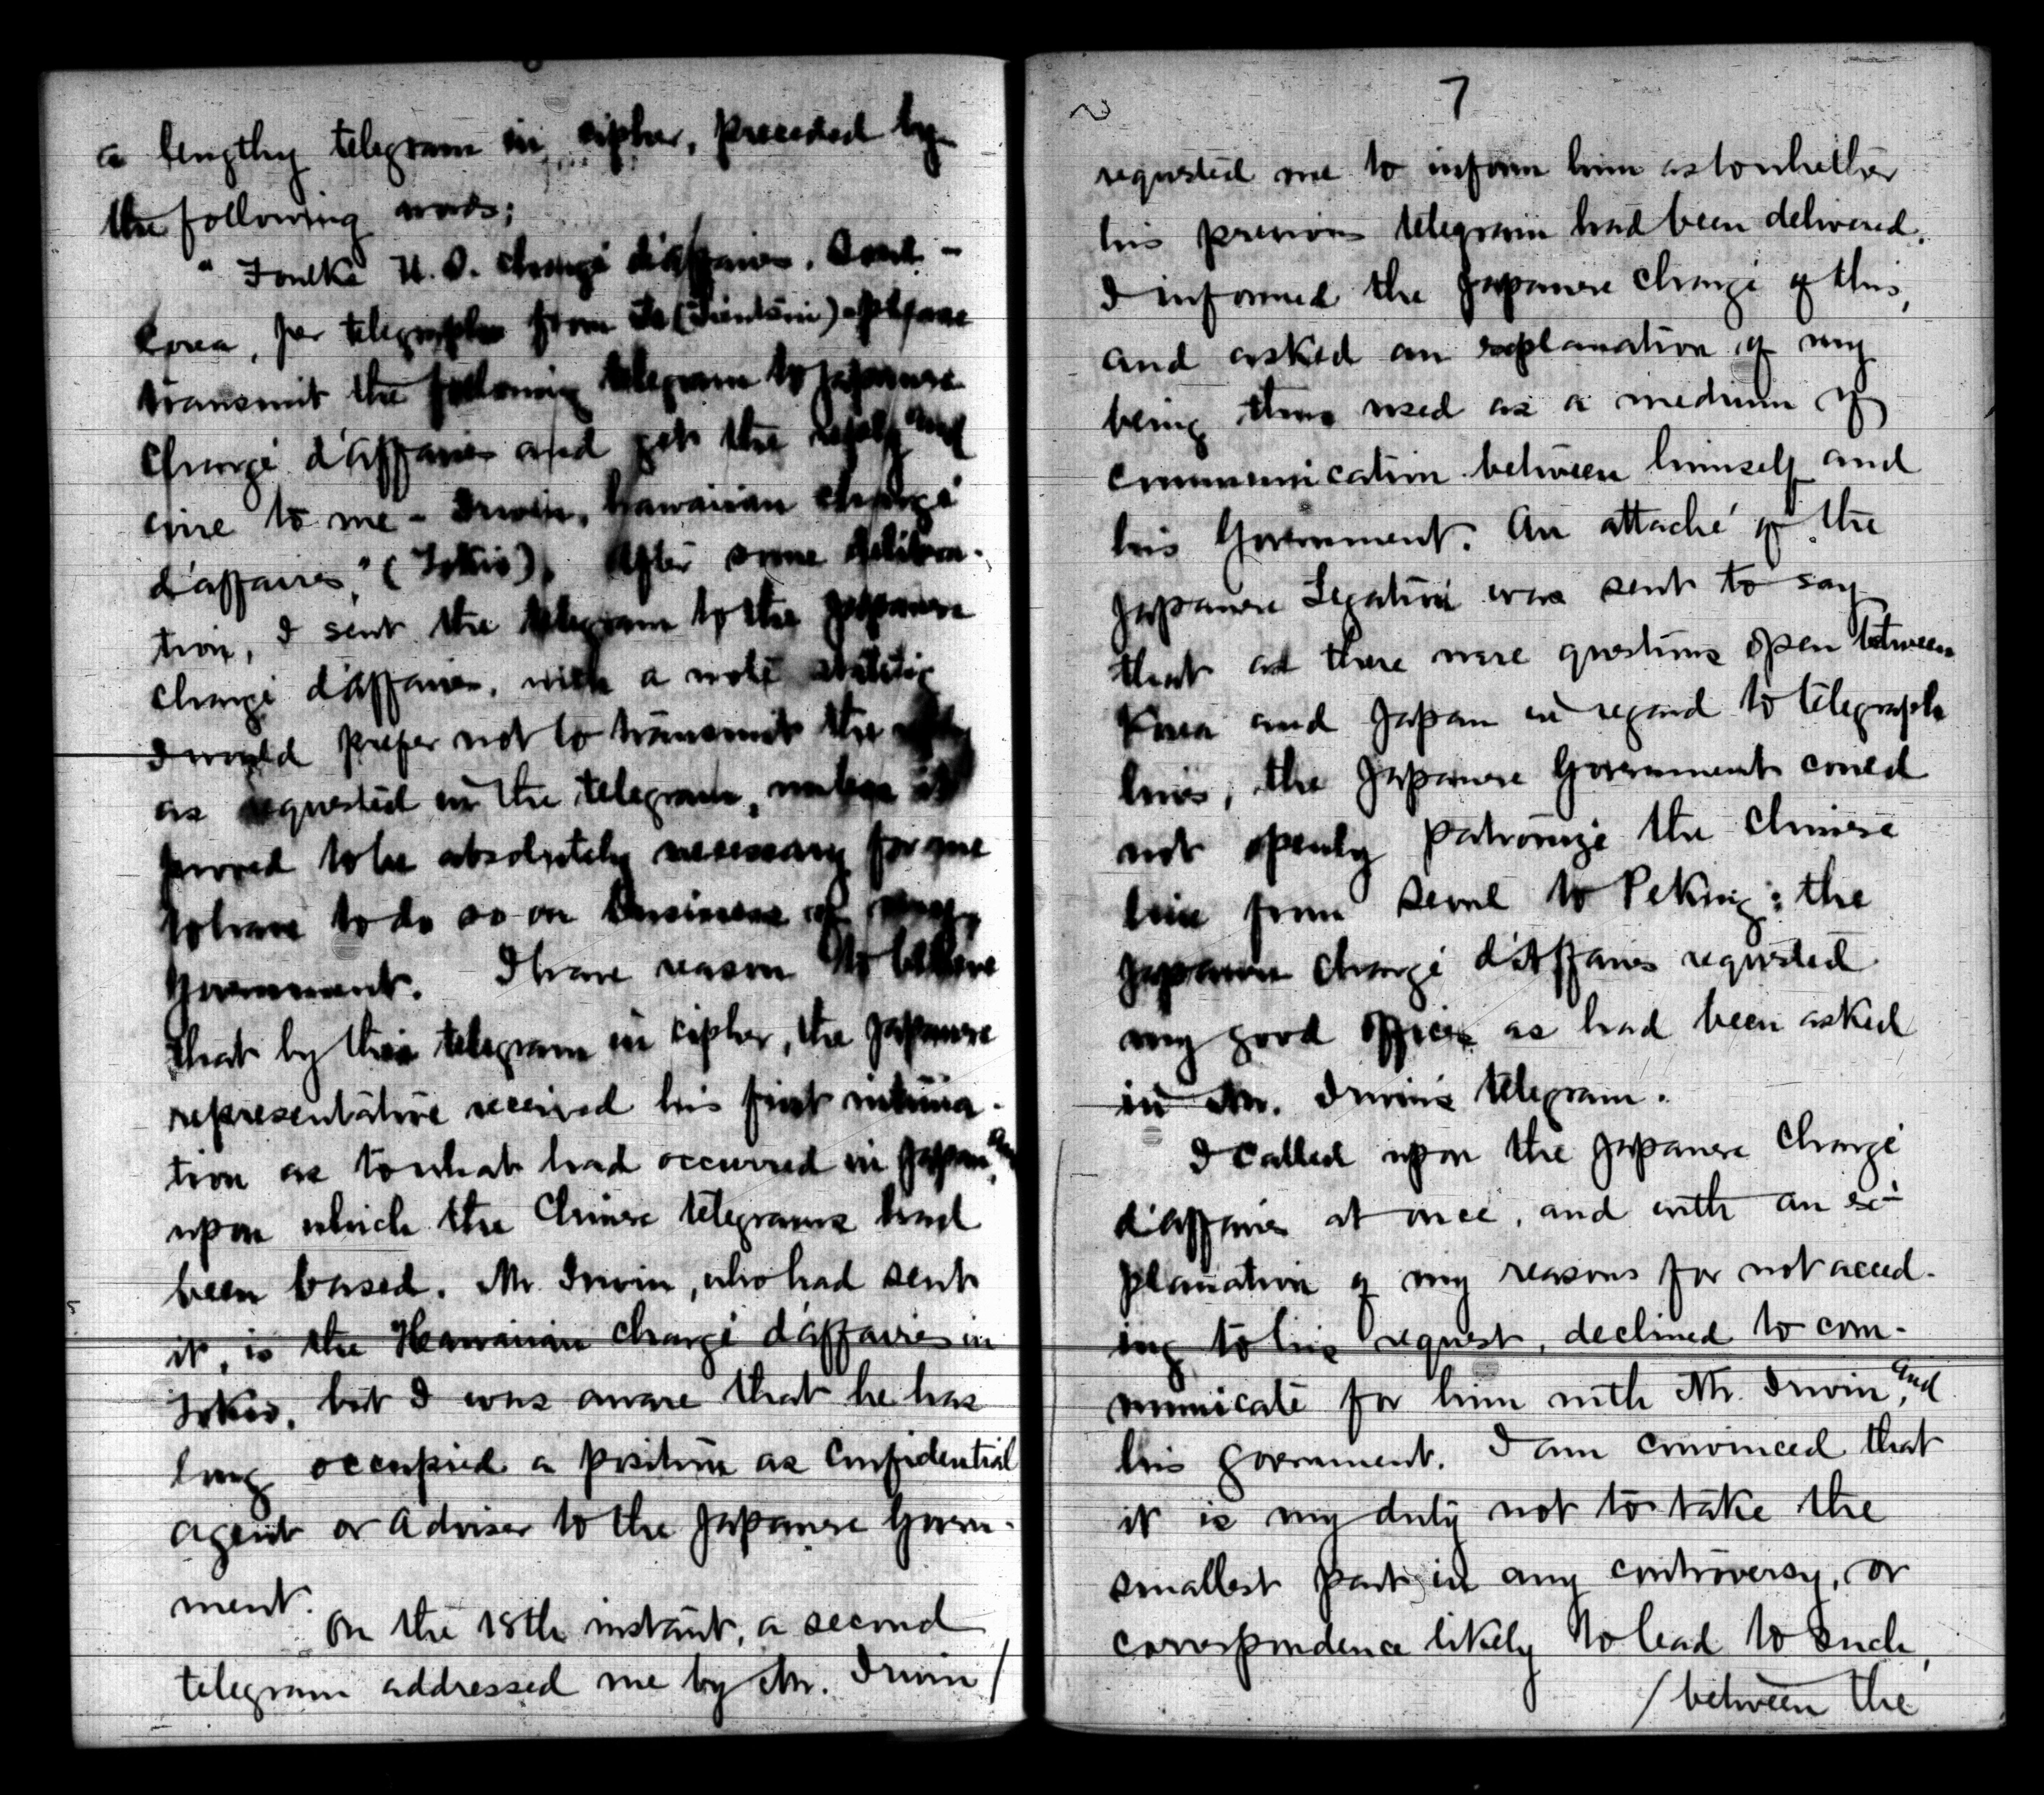 a lengthy telegram in cipher, preceded by
the following words;
" Foulke U.S. Chargé d'affaires. Seoul -
Corea, per telegraph from (Tientsin) - please
transmit the following telegram to Japanese
Chargé d'affaires and get the reply and
wire to me - Irwin, Hawaiian Chargé
d'affaires," (Tokio). After some delibera-
tion, I sent the telegram to the Japanese
Chargé d'affaires, with a note stating
I would prefer not to transmit the reply
as requested in the telegram, unless it
proved to be absolutely necessary for me
to have to do so on business of my
Government. I have reason to believe
that by this telegram in cipher, the Japanese
representative received his first intima-
tion as to what had occurred in Japan, and
upon which the Chinese telegrams had
been based. Mr. Irwin, who had sent
it, is the Hawaiian Chargé d'affaires in
Tokio, but I was aware that he has
long occupied a position as Confidential
agent or Adviser to the Japanese Govern-
ment.
On the 18th instant, a second
telegram addressed me by Mr. Irwin /
7
requested me to inform him as to whether
his previous telegram had been delivered.
I informed the Japanese Chargé of this,
and asked an explanation of my
being thus used as a medium of
communication between himself and
his Government. An attaché of the
Japanese Legation was sent to say
that as there were questions open between
Korea and Japan in regard to telegraph
lines, the Japanese Government could
not openly patronize the Chinese
line from Seoul to Peking; the
Japanese Chargé d'Affaires requested
my good offices as had been asked
in Mr. Irwin's telegram.
I called upon the Japanese Chargé
d'affaires at once, and with an ex-
planation of my reasons for not acced-
ing to his request, declined to com-
municate for him with Mr. Irwin, and
his government. I am convinced that
it is my duty not to take the
smallest part in any controversy, or
correspondence likely to lead to such,
/ between the